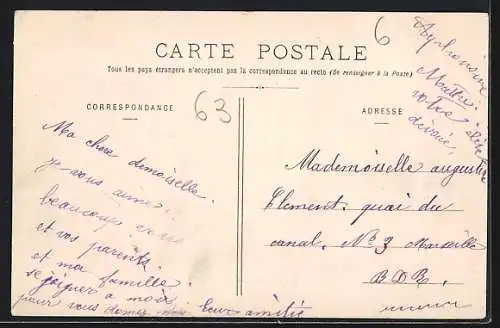 CARTE POSTALE
Tous les pays étrangers n'acceptent pas la correspondance au recto (Se renseigner à la Poste)
CORRESPONDANCE
ADRESSE
6
63
Ma chere demoiselle
je vous aime
beaucoup vous
et vos parents
et ma famille
se joigner a moi
pour vous donner leur amitié
Mademoiselle augustine
Clement. quai du
canal. Nº 3 Marseille
B.D.R.
votre